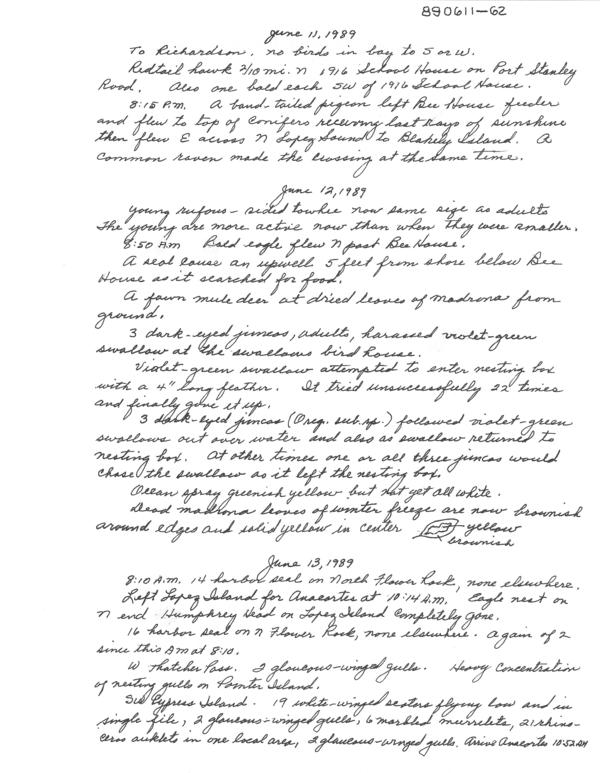 890611-62
June 11, 1989
To Richardson, no birds in bay to S or W.
Redtail hawk 2/10 mi. N 1916 School House on Port Stanley
Road. Also one bald each SW of 1916 School House.
8:15 P.M. A band-tailed pigeon left Bee House feeder
and flew to top of Conifers receiving last rays of sunshine
then flew E across N Lopez Sound to Blakely Island. A
Common raven made the crossing at the same time.
June 12, 1989
Young rufous-sided towhee now same size as adults
The young are more active now than when they were smaller.
8:50 AM Bald eagle flew N past Bee House.
A seal cause an upwell 5 feet from shore below Bee
House as it searched for food.
A fawn mule deer at dried leaves of madrona from
ground.
3 dark-eyed juncos, adults, harassed violet-green
swallow at the swallows bird house.
Violet-green swallow attempted to enter nesting box
with a 4" long feather. It tried unsuccessfully 22 times
and finally gave it up.
3 dark-eyed juncos (Oreg. sub.sp.) followed violet-green
swallows out over water and also as swallow returned to
nesting box. At other times one or all three juncos would
chase the swallow as it left the nesting box.
Ocean spray greenish yellow but not yet all white.
Dead madrona leaves of winter freeze are now brownish
around edges and solid yellow in center yellow
brownish
June 13, 1989
8:10 A.M. 14 harbor seal on North Flower Rock, none elsewhere.
Left Lopez Island for Anacortes at 10:14 A.M. Eagle nest on
N end Humphrey Head on Lopez Island Completely gone.
16 harbor seal on N Flower Rock, none elsewhere. A gain of 2
since this AM at 8:10.
W Thatcher Pass. 2 glaucous-winged gulls. Heavy Concentration
of nesting gulls on Pointer Island.
SW Cypress Island. 19 white-winged scoters flying low and in
single file, 2 glaucous-winged gulls, 6 marbled murrelets, 21 rhino-
ceros auklets in one local area, 2 glaucous-winged gulls. Arrive Anacortes 10:52 AM